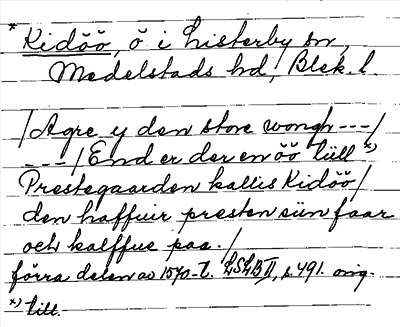 * Kidöö, ö i Listerby sn,
Medelstads hd, Blek. l.
/Agre y den store wongh ---/
---/ End er der en öö lüll *)
Prestegaarden kallis Kidöö/
den haffuir presten siin faar
och kalffue paa./
förra delen av 1570-t. LSLB II, s. 491. orig.
*) till.